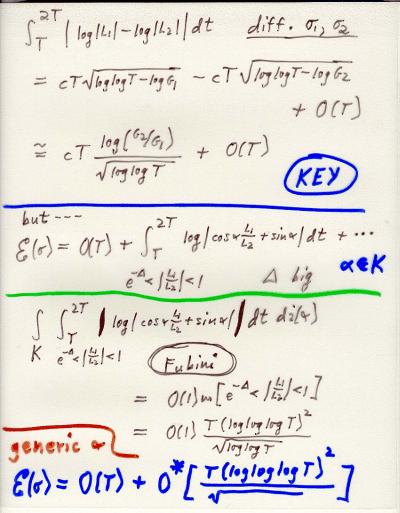 ∫_T^{2T} | log|L₁| - log|L₂| | dt diff. σ₁, σ₂
= cT√(loglogT - logG₁) - cT√(loglogT - logG₂)
+ O(T)
≅ cT log(G₂/G₁) / √(loglogT) + O(T)
KEY
but ---
Ɛ(σ) = O(T) + ∫_T^{2T} log|cosα L₁/L₂ + sinα| dt + ⋯
α∈K
e^{-Δ} < |L₁/L₂| < 1 Δ big
∫_K ∫_T^{2T} | log|cosα L₁/L₂ + sinα| | dt dλ(α)
K e^{-Δ} < |L₁/L₂| < 1
Fubini
= O(1) m[e^{-Δ} < |L₁/L₂| < 1]
= O(1) T(logloglogT)² / √(loglogT)
generic α
Ɛ(σ) = O(T) + O*[T(logloglogT)² / √]